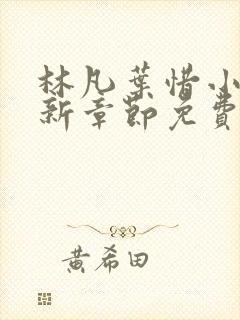 林凡葉惜小
新章節免費
黃希田